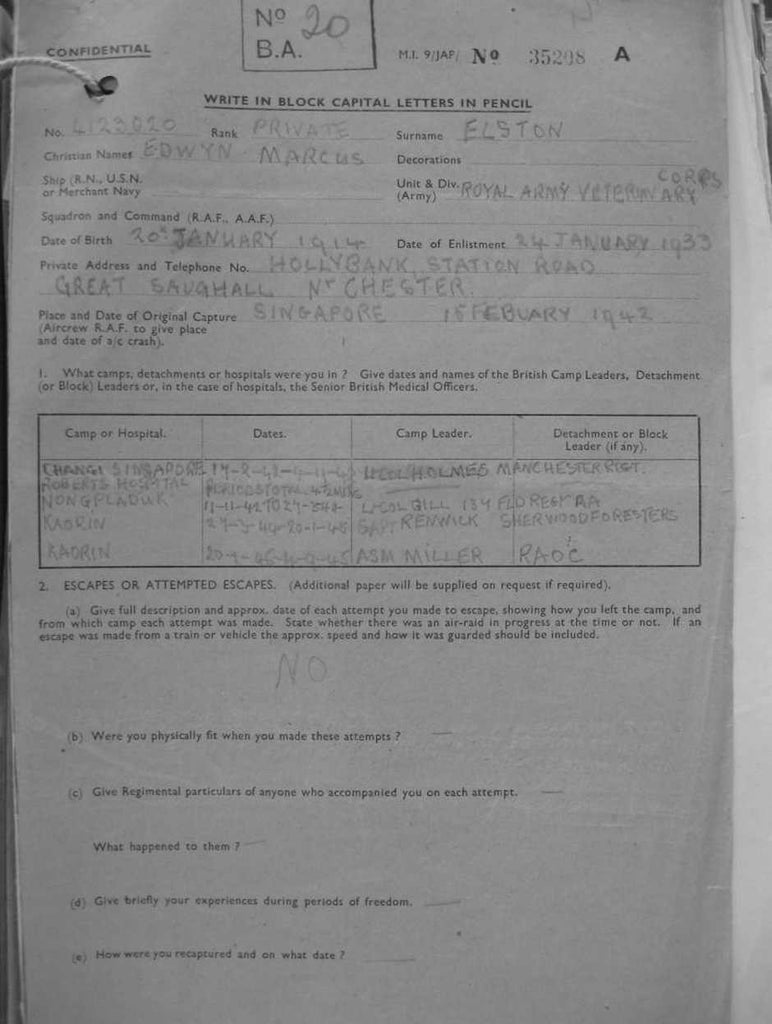 Nº 20
B.A.
CONFIDENTIAL
M.I. 9/JAP/ Nº 35208 A
WRITE IN BLOCK CAPITAL LETTERS IN PENCIL
No. 4123020 Rank PRIVATE Surname ELSTON
Christian Names EDWYN MARCUS Decorations
Ship (R.N., U.S.N. or Merchant Navy
Unit & Div. (Army) ROYAL ARMY VETERINARY CORPS
Squadron and Command (R.A.F., A.A.F.)
Date of Birth 20th JANUARY 1914 Date of Enlistment 24 JANUARY 1933
Private Address and Telephone No. HOLLYBANK, STATION ROAD
GREAT SAUGHALL Nr CHESTER.
Place and Date of Original Capture SINGAPORE 15 FEBUARY 1942
(Aircrew R.A.F. to give place
and date of a/c crash).
1. What camps, detachments or hospitals were you in ? Give dates and names of the British Camp Leaders, Detachment
(or Block) Leaders or, in the case of hospitals, the Senior British Medical Officers.
Camp or Hospital. Dates. Camp Leader. Detachment or Block Leader (if any).
CHANGI SINGAPORE LT COL HOLMES MANCHESTER REGT.
ROBERTS HOSPITAL PERIODS TOTAL
NONGPLADUK LT COL GILL 134 FLD REGT RA
KAORIN CAPT RENWICK SHERWOOD FORESTERS
KAORIN ASM MILLER RAOC
2. ESCAPES OR ATTEMPTED ESCAPES. (Additional paper will be supplied on request if required).
(a) Give full description and approx. date of each attempt you made to escape, showing how you left the camp, and
from which camp each attempt was made. State whether there was an air-raid in progress at the time or not. If an
escape was made from a train or vehicle the approx. speed and how it was guarded should be included.
NO
(b) Were you physically fit when you made these attempts ? —
(c) Give Regimental particulars of anyone who accompanied you on each attempt. —
What happened to them ? —
(d) Give briefly your experiences during periods of freedom. —
(e) How were you recaptured and on what date ? —